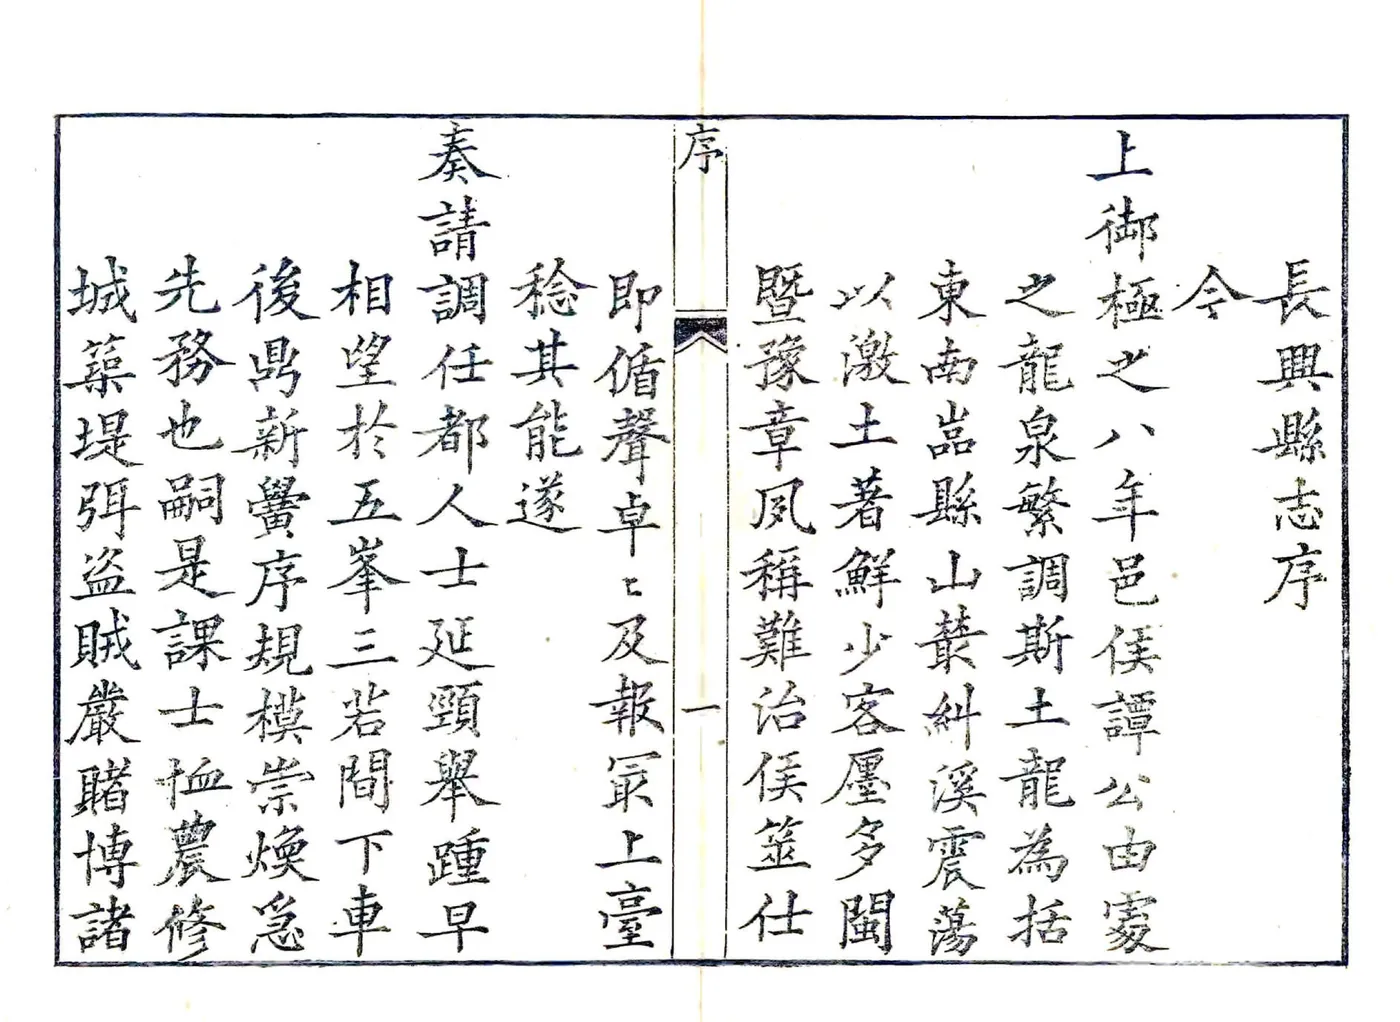 長興縣志序
今
上御極之八年邑侯譚公由處
之龍泉繁調斯土龍為括
東南嵓縣山叢糾溪震蕩
以激土著鮮少客廛多閩
暨豫章夙稱難治侯筮仕
序
一
即循聲卓〻及報冣上臺
稔其能遂
奏請調任都人士延頸舉踵早
相望於五峯三箬間下車
後鼎新黌序規模崇煥急
先務也嗣是課士恤農修
城築堤弭盜賊嚴賭博諸